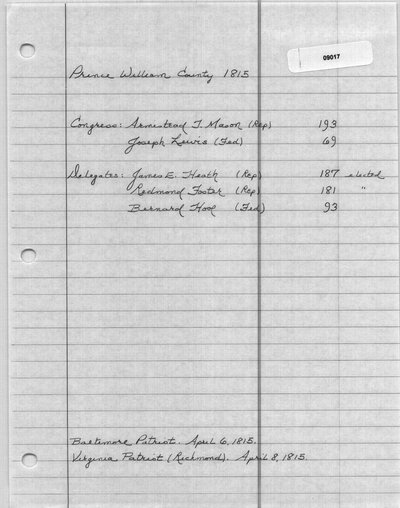 09017
Prince William County 1815
Congress: Armestead T. Mason (Rep) 193
Joseph Lewis (Fed) 69
Delegates: James E. Heath (Rep) 187 elected
Redmond Foster (Rep) 181 "
Bernard Hooe (Fed) 93
Baltimore Patriot. April 6, 1815.
Virginia Patriot (Richmond). April 8, 1815.